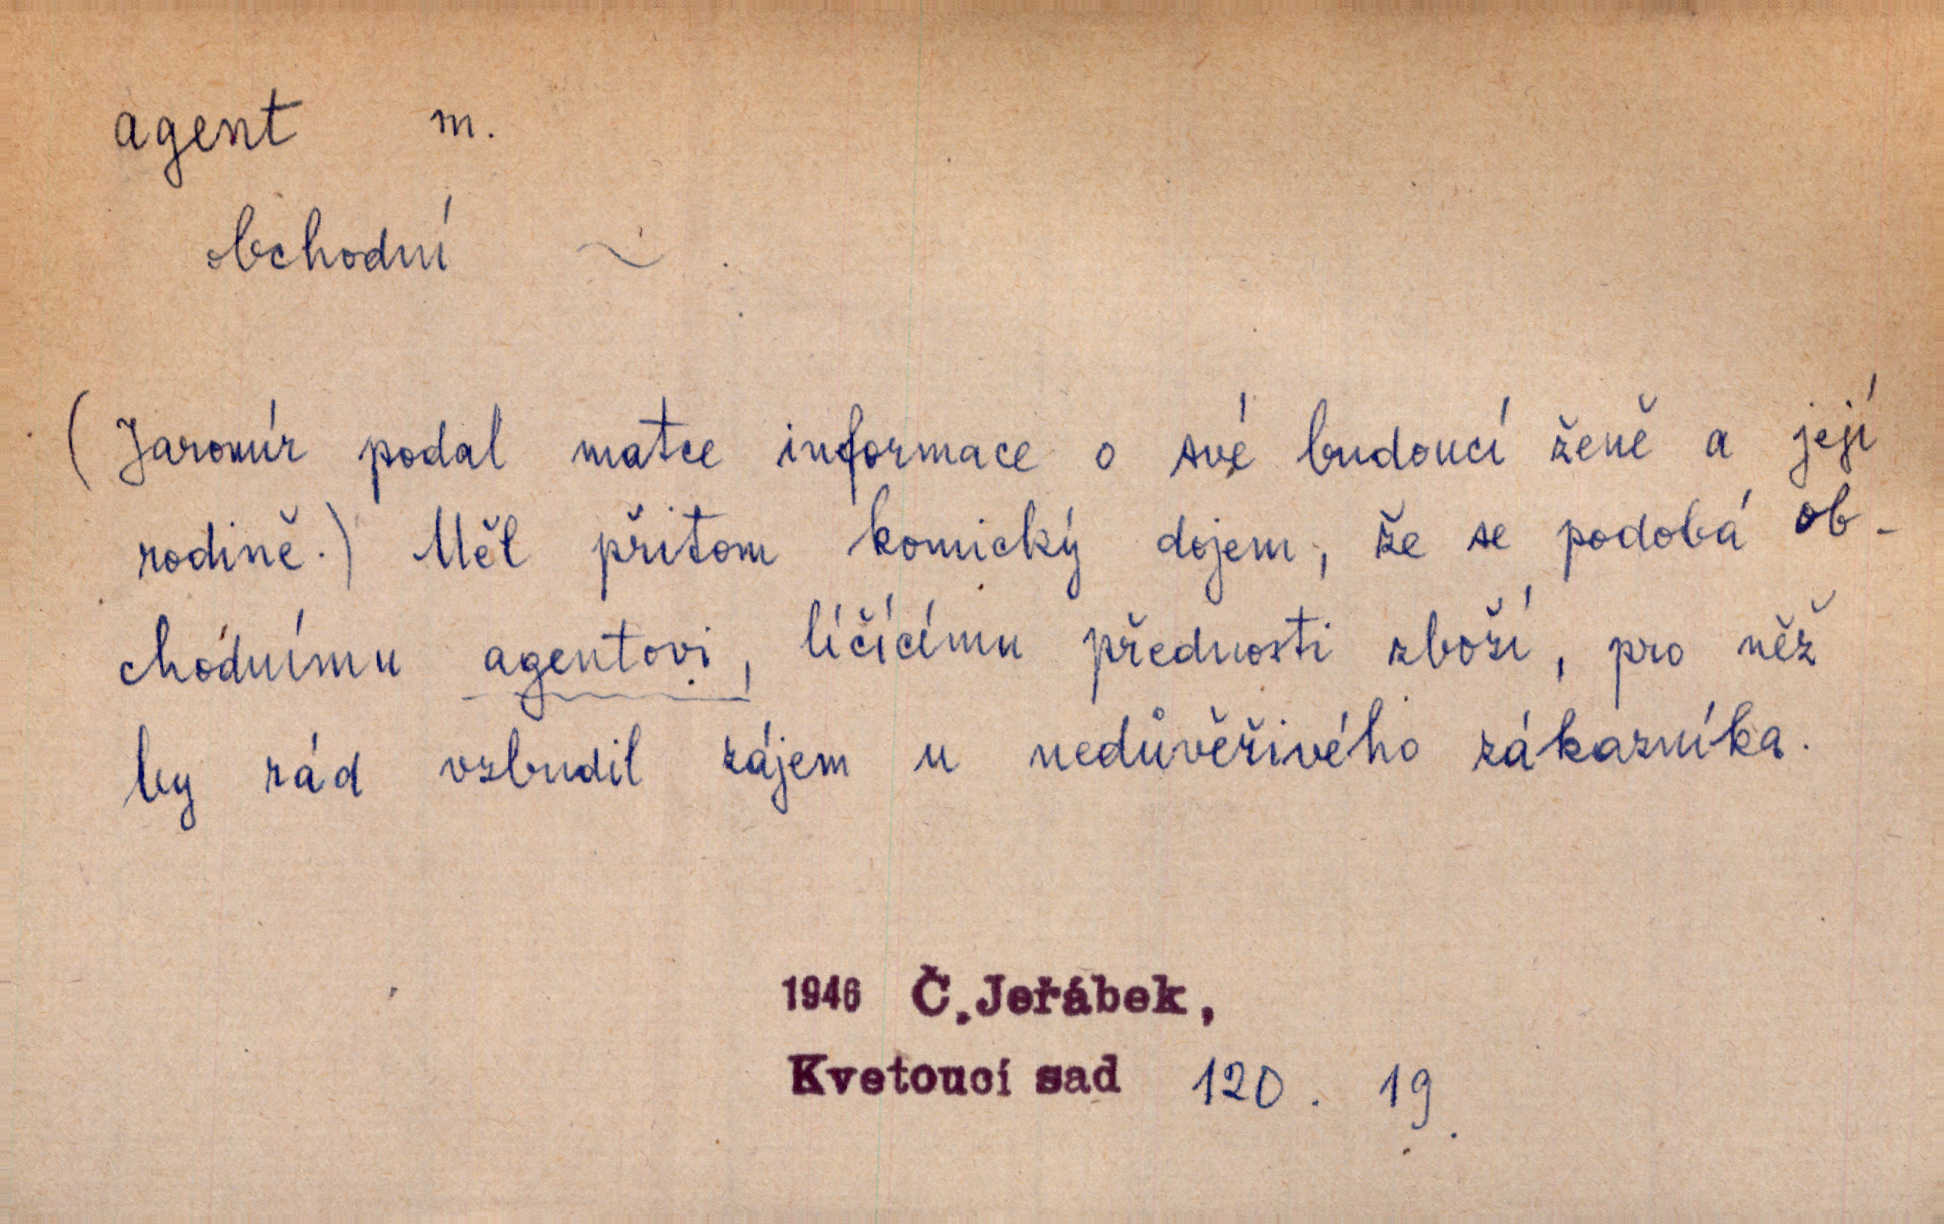 agent m.
obchodní ~ .
(Jaromír podal matce informace o své budoucí ženě a její
rodině.) Měl přitom komický dojem, že se podobá ob-
chodnímu agentovi, líčícímu přednosti zboží, pro něž
by rád vzbudil zájem u nedůvěřivého zákazníka.
1946 Č.Jeřábek,
Kvetoucí sad 120. 19.